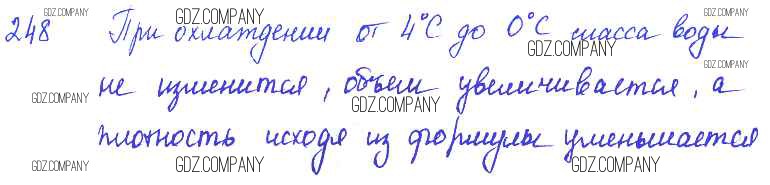 GDZ.COMPANY GDZ.COMPANY GDZ.COMPANY GDZ.COMPANY
248 При охлаждении от 4°С до 0°С масса воды
GDZ.COMPANY GDZ.COMPANY
не изменится, объем увеличивается, а
GDZ.COMPANY GDZ.COMPANY
плотность исходя из формулы уменьшается
GDZ.COMPANY GDZ.COMPANY GDZ.COMPANY GDZ.COMPANY